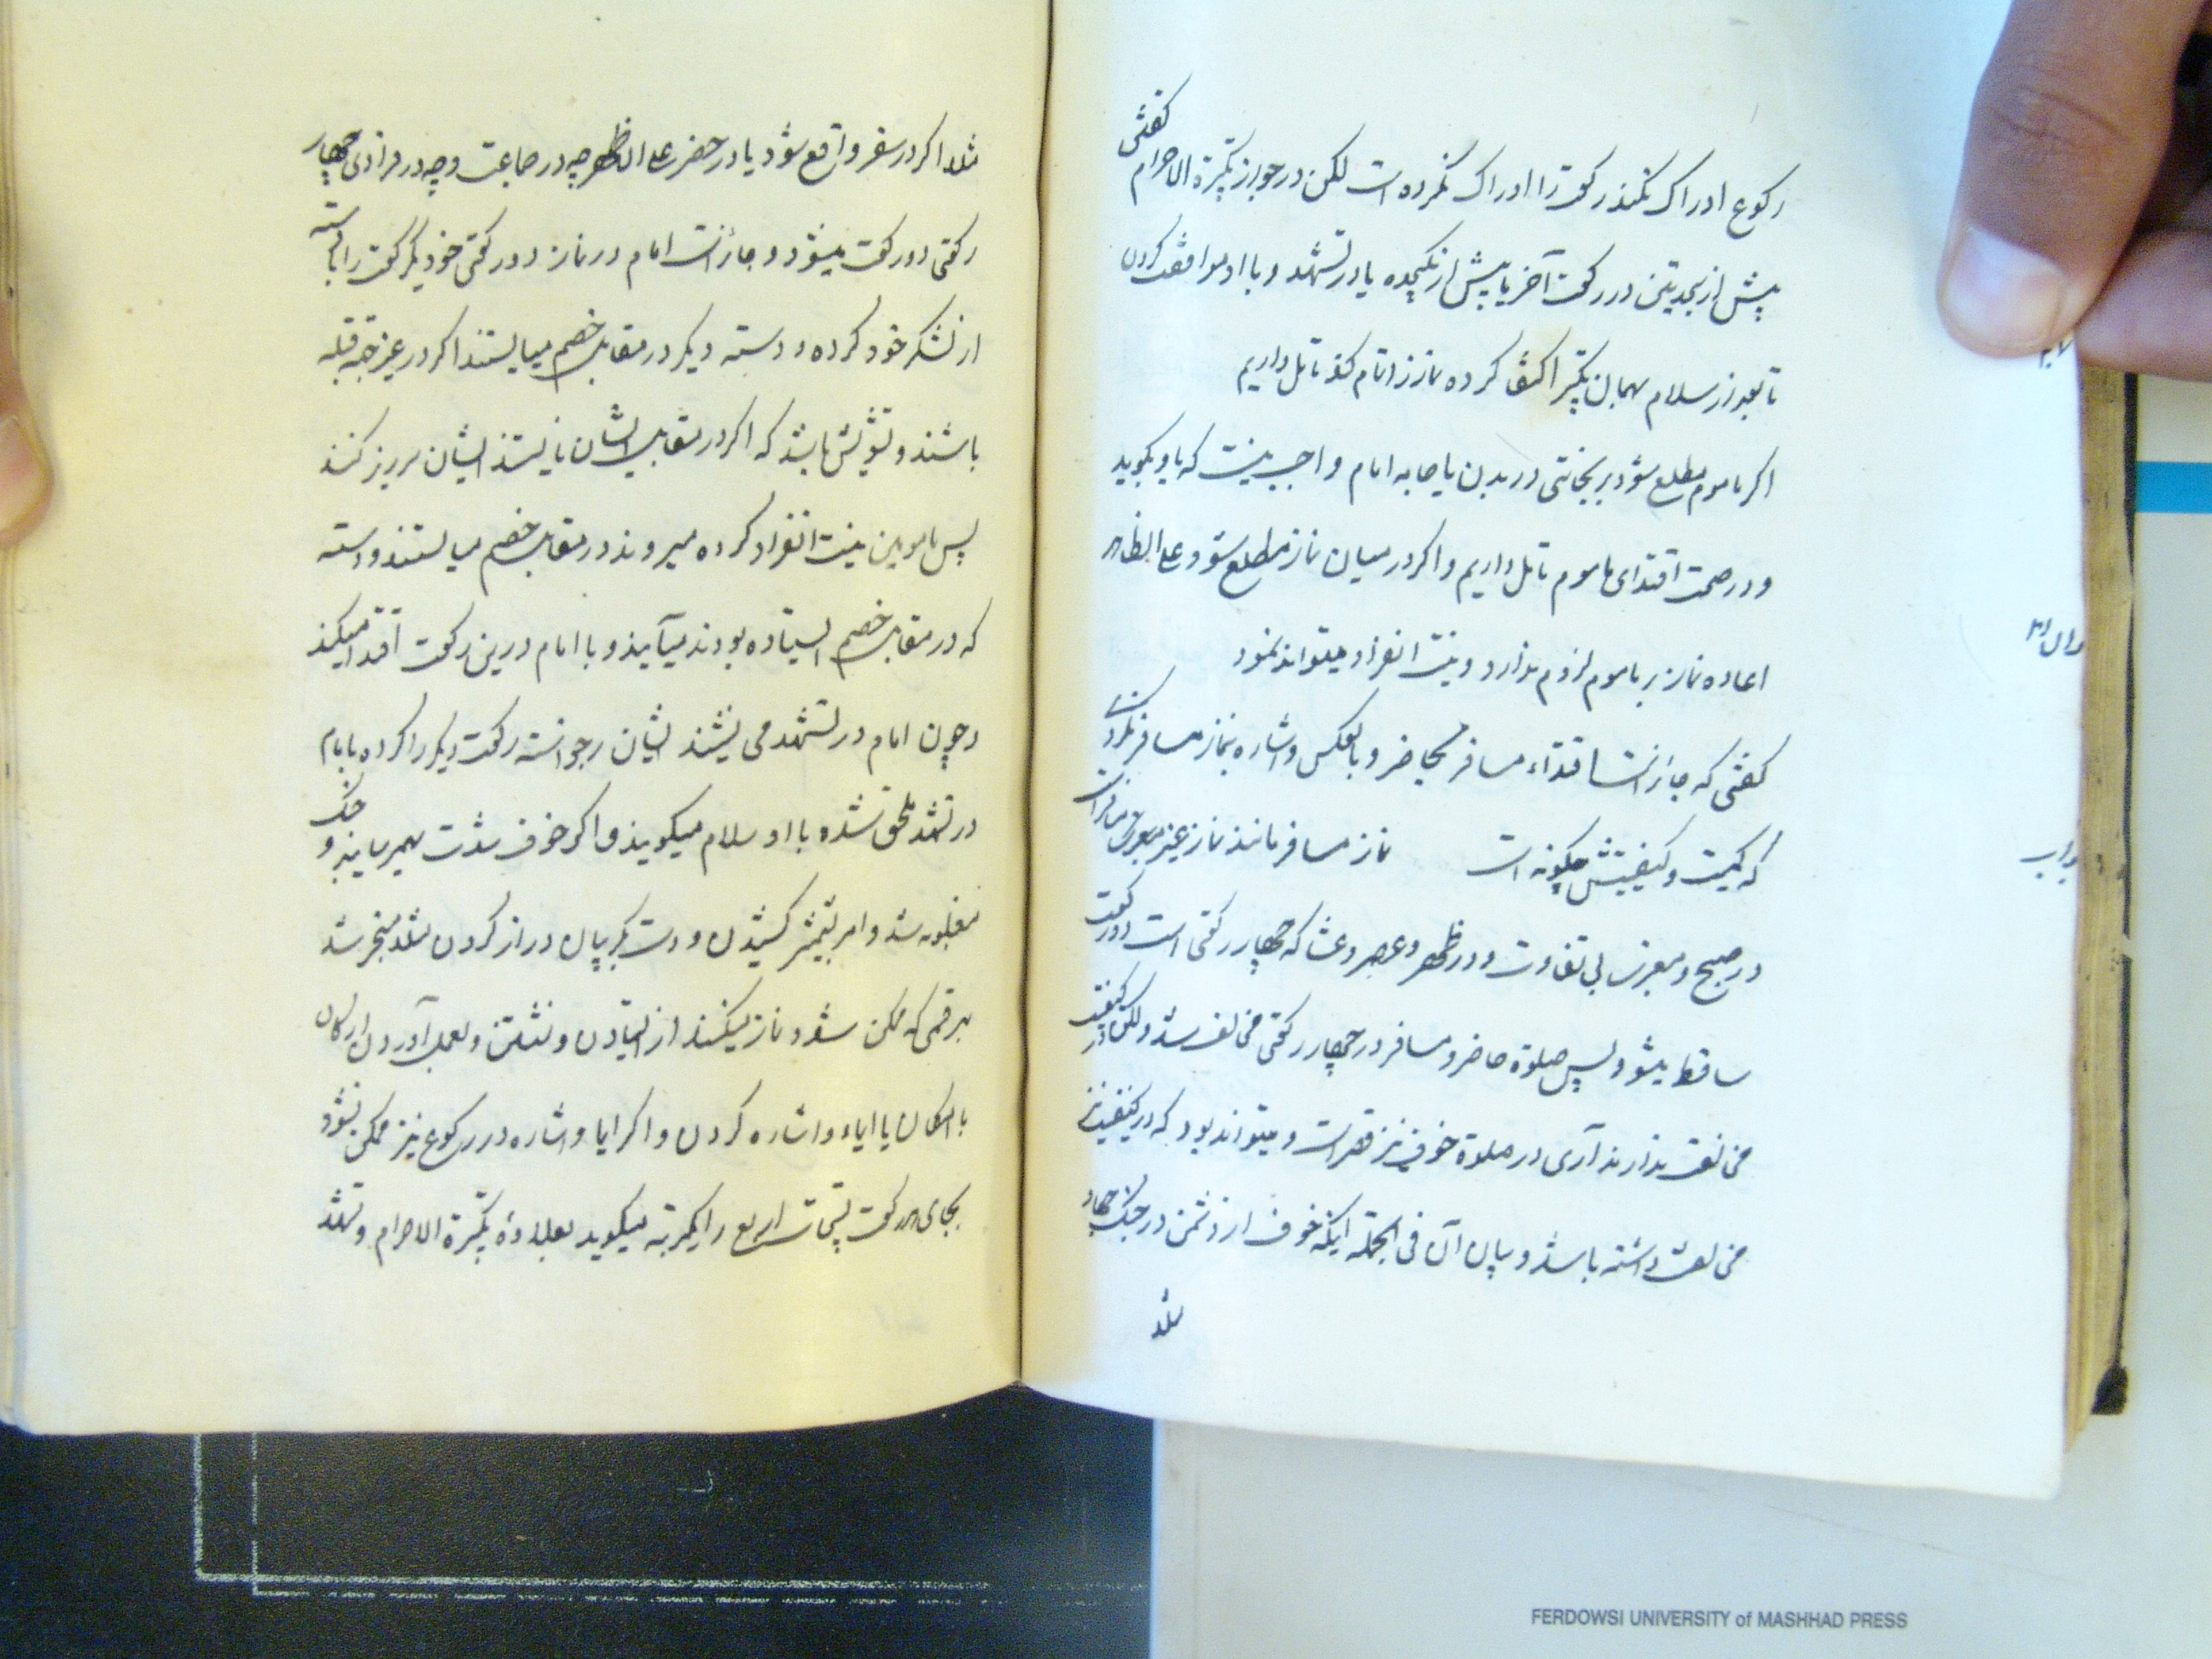 رکوع ادراک نکند رکعت را ادراک نکرده است لکن در جواز تکبیرة الاحرام گفتن
پیش از سجدتین در رکعت آخر یا پیش از سجده یا در تشهد و با او موافقت کردن
تا بعد از سلام بهمان تکبیر اکتفا کرده نماز را تمام کند تامل داریم
اگر ماموم مطلع شود بر نجاستی در بدن یا جامه امام واجب نیست که باو بگوید
و در صحت اقتدای ماموم تامل داریم و اگر در میان نماز مطلع شود علی الظاهر
اعاده نماز بر ماموم لزوم ندارد و نیت انفراد میتواند نمود
سوال
گفتی که جایز است اقتداء مسافر بحاضر و بالعکس و اشاره بنماز مسافر نکردی
که کمیت و کیفیتش چگونه است نماز مسافر مانند نماز غیر مسافر است
جواب
در صبح و مغرب بی تفاوت و در ظهر و عصر و عشا که چهار رکعتی است دو رکعت
ساقط میشود پس صلوة حاضر و مسافر در چهار رکعتی مخالف شد ولکن در کیفیت
مخالفت ندارند آری در صلوة خوف نیز قصر است و میتواند بود که در کیفیت نیز
مخالفت داشته باشد و بیان آن فی الجمله اینکه خوف از دشمن در جنگ و جهاد
مثلا
مثلا اگر در سفر واقع شود یا در حضر علی الاظهر چه در جماعت و چه در فرادی چهار
رکعتی دو رکعت میشود و جایز است امام در نماز دو رکعتی خود یک رکعت را با دسته
از لشکر خود کرده و دسته دیگر در مقابل خصم میایستند اگر در غیر جهة قبله
باشند و تشویش باشد که اگر در مقابل ایشان نایستند ایشان بریزند
پس مامومین نیت انفراد کرده میروند در مقابل خصم میایستند و دسته
که در مقابل خصم ایستاده بودند میآیند و با امام درین رکعت اقتدا میکنند
و چون امام در تشهد می نشیند ایشان برخواسته رکعت دیگر را کرده با امام
در تشهد ملحق شده با او سلام میگویند و اگر خوف شدت بهم رسانید و جنگ
مغلوبه شد و امر بشمشیر کشیدن و دست بگریبان دراز کردن مثلا منجر شد
هر قسمی که ممکن شود نماز میکنند از ایستادن و نشستن و بعمل آوردن ارکان
با امکان یا ایماء و اشاره کردن و اگر ایما و اشاره در رکوع نیز ممکن نشود
بجای هر رکعت تسبیحات اربع را یکمرتبه میگوید بعلاوهٔ تکبیرة الاحرام و تشهد
FERDOWSI UNIVERSITY of MASHHAD PRESS